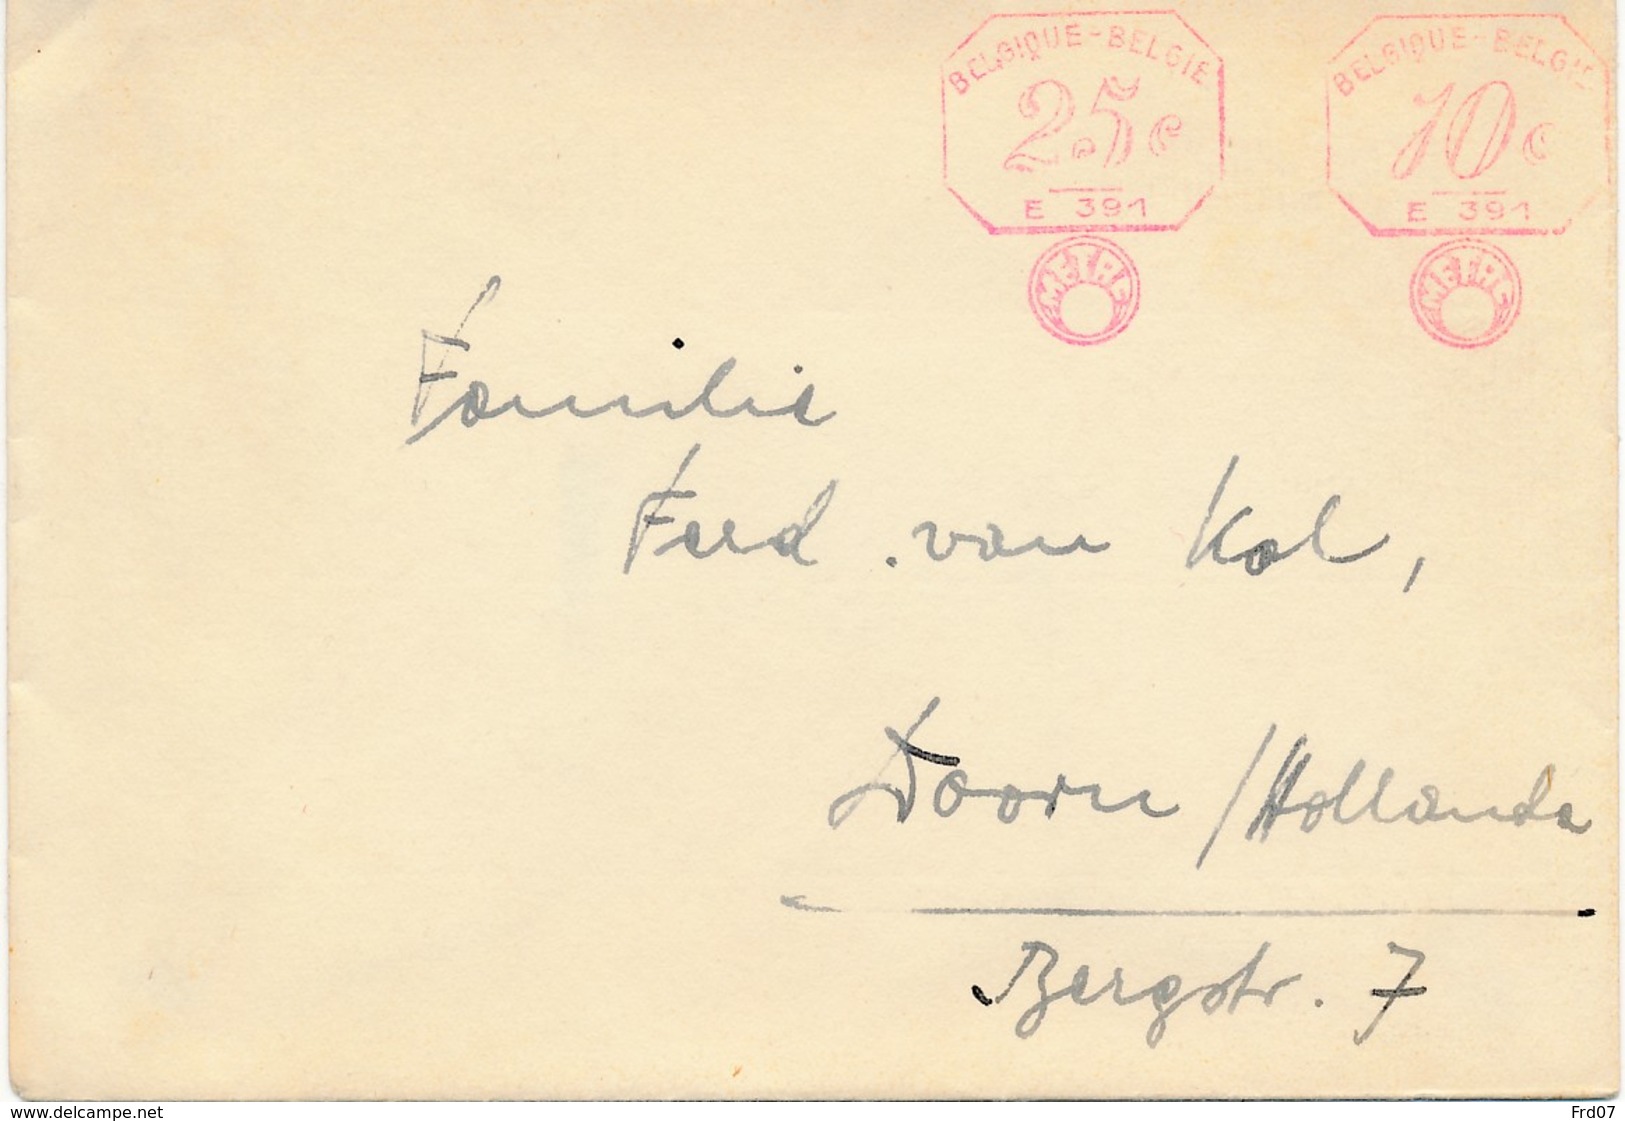 BELGIQUE-BELGIE
25c
E 391
BELGIQUE-BELGIE
10c
E 391
Familie
Ferd. van Kol,
Doorn/Hollanda
Bergstr. 7
www.delcampe.net
Frd07